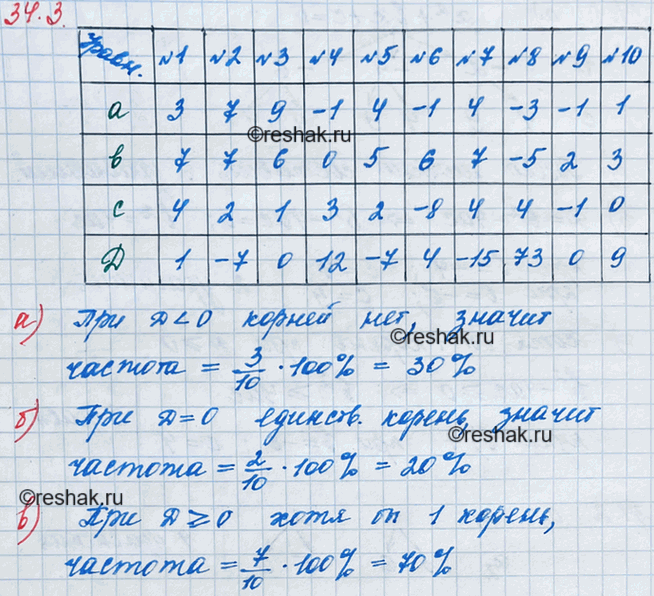 34.3.
Уравн. №1 №2 №3 №4 №5 №6 №7 №8 №9 №10
a 3 7 9 -1 4 -1 4 -3 -1 1
©reshak.ru
в 7 7 6 0 5 6 7 -5 2 3
c 4 2 1 3 2 -8 4 4 -1 0
Д 1 -7 0 12 -7 4 -15 73 0 9
а) При D<0 корней нет, значит
©reshak.ru
частота = 3/10 · 100% = 30%
б) При D=0 единств. корень, значит
©reshak.ru
частота = 2/10 · 100% = 20%
©reshak.ru
в) При D ≥ 0 хотя бы 1 корень,
частота = 7/10 · 100% = 70%